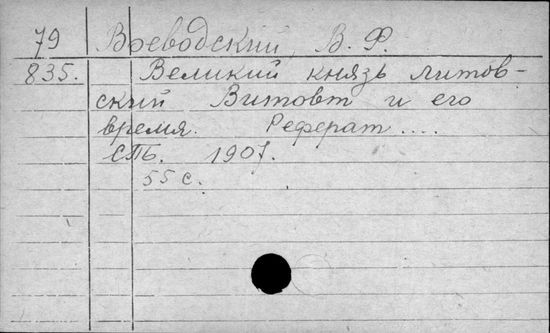 79 Воеводский, В. Ф.
835. Великий князь литов-
ский Витовт и его
время. Реферат ....
СПБ. 1907.
55 с.